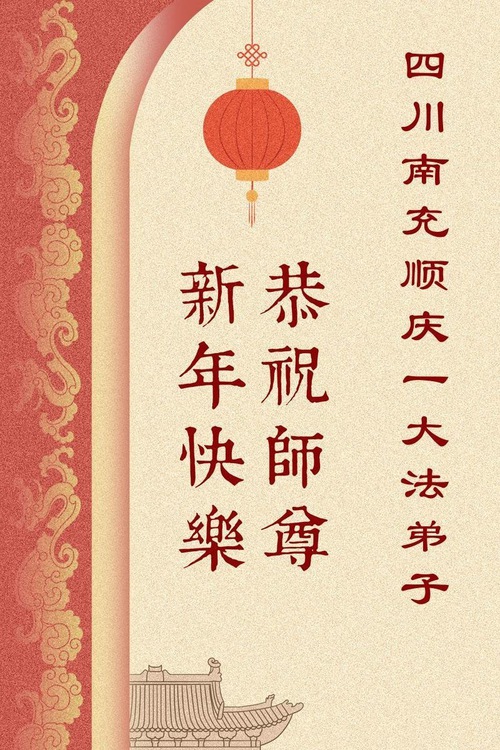 四川南充顺庆一大法弟子
恭祝師尊
新年快樂